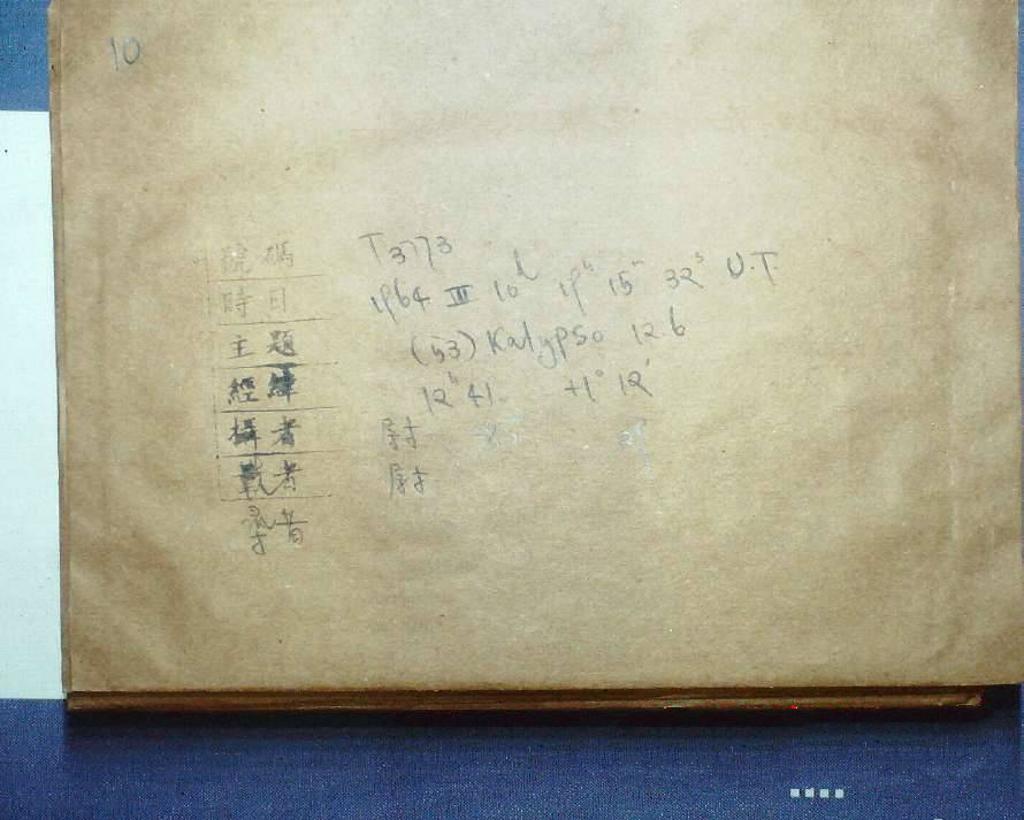 10
號碼 T3773
時日 1964 III 10d 19h 15m 32s U.T.
主題 (53) Kalypso 12.6
經緯 12h 41. +1° 12'
攝者 尉
戳者 尉
者